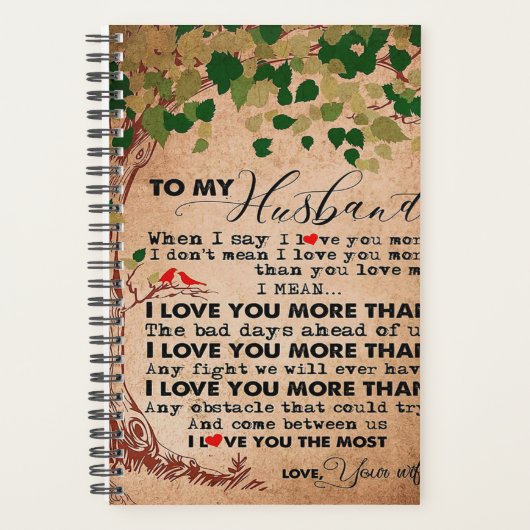 TO MY Husband
When I say I l❤ve you mor
I don't mean I love you mor
than you love m
I MEAN...
I LOVE YOU MORE THA
The bad days ahead of u
I LOVE YOU MORE THA
Any fight we will ever hav
I LOVE YOU MORE THAN
Any obstacle that could try
And come between us
I L❤VE YOU THE MOST
LOVE, Your wif